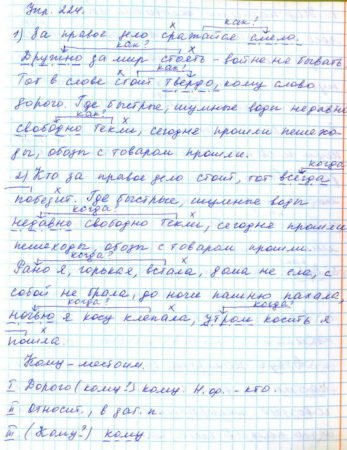 Упр. 224.
как?
1) За правое дело сражайся смело.
как?
Дружно за мир стоять – войне не бывать
как?
Тот в слове стоит твёрдо, кому слово
дорого. Где быстрые, шумные воды недавно
как?
свободно текли, сегодня прошли пешехо-
ды, обозы с товаром прошли.
когда?
2) Кто за правое дело стоит, тот всегда
победит. Где быстрые, шумные воды
когда?
недавно свободно текли, сегодня прошли
пешеходы, обозы с товаром прошли.
когда?
Рано я, горькая, встала, дома не ела, с
собой не брала, до ночи пашню пахала,
когда? когда?
ночью я косу клепала, утром косить я
пошла.
Кому – местоим.
I Дорого (кому?) кому. Н.ф. – кто.
II Относит., в дат. п.
III (Кому?) кому